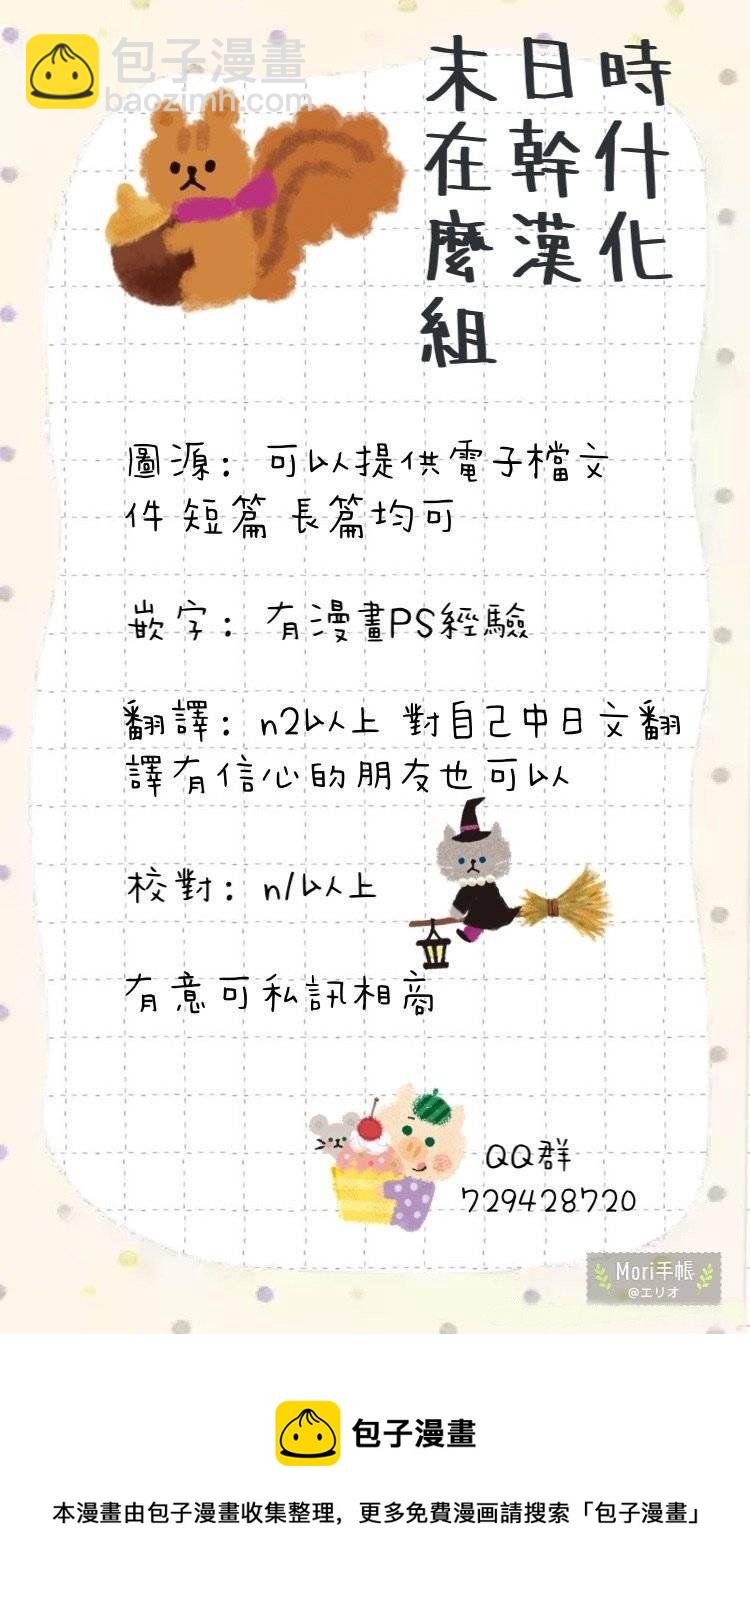 包子漫畫
baozimh.com
末日時
在幹什
麼漢化
組
圖源：可以提供電子檔文
件 短篇 長篇均可
嵌字：有漫畫PS經驗
翻譯：n2以上 對自己中日文翻
譯有信心的朋友也可以
校對：n1以上
有意可私訊相商
QQ群
729428720
Mori手帳
@エリオ
包子漫畫
本漫畫由包子漫畫收集整理，更多免費漫画請搜索「包子漫畫」